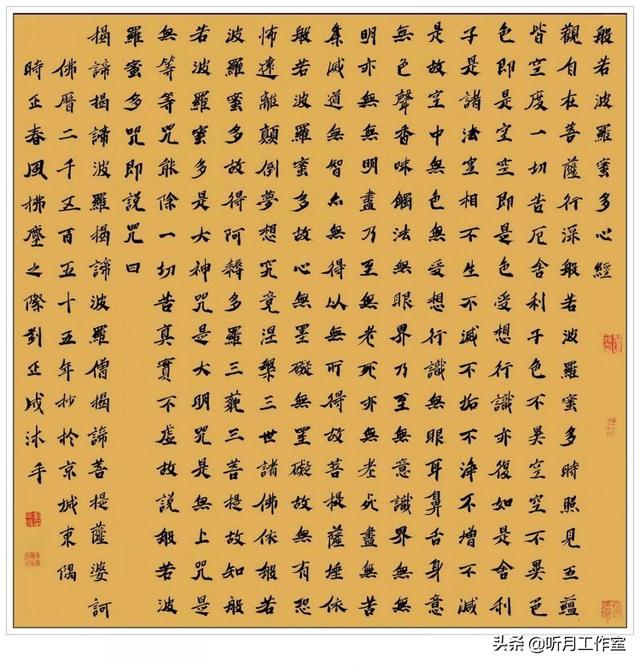 般若波羅蜜多心經
觀自在菩薩行深般若波羅蜜多時照見五蘊
皆空度一切苦厄舍利子色不異空空不異色
色即是空空即是色受想行識亦復如是舍利
子是諸法空相不生不滅不垢不淨不增不減
是故空中無色無受想行識無眼耳鼻舌身意
無色聲香味觸法無眼界乃至無意識界無無
明亦無無明盡乃至無老死亦無老死盡無苦
集滅道無智亦無得以無所得故菩提薩埵依
般若波羅蜜多故心無罣礙無罣礙故無有恐
怖遠離顛倒夢想究竟涅槃三世諸佛依般若
波羅蜜多故得阿耨多羅三藐三菩提故知般
若波羅蜜多是大神咒是大明咒是無上咒是
無等等咒能除一切苦真實不虛故說般若波
羅蜜多咒即說咒曰
揭諦揭諦波羅揭諦波羅僧揭諦菩提薩婆訶
佛曆二千五百五十五年杪於京城東隅
時正春風拂塵之際劉正成沐手
头条 @听月工作室